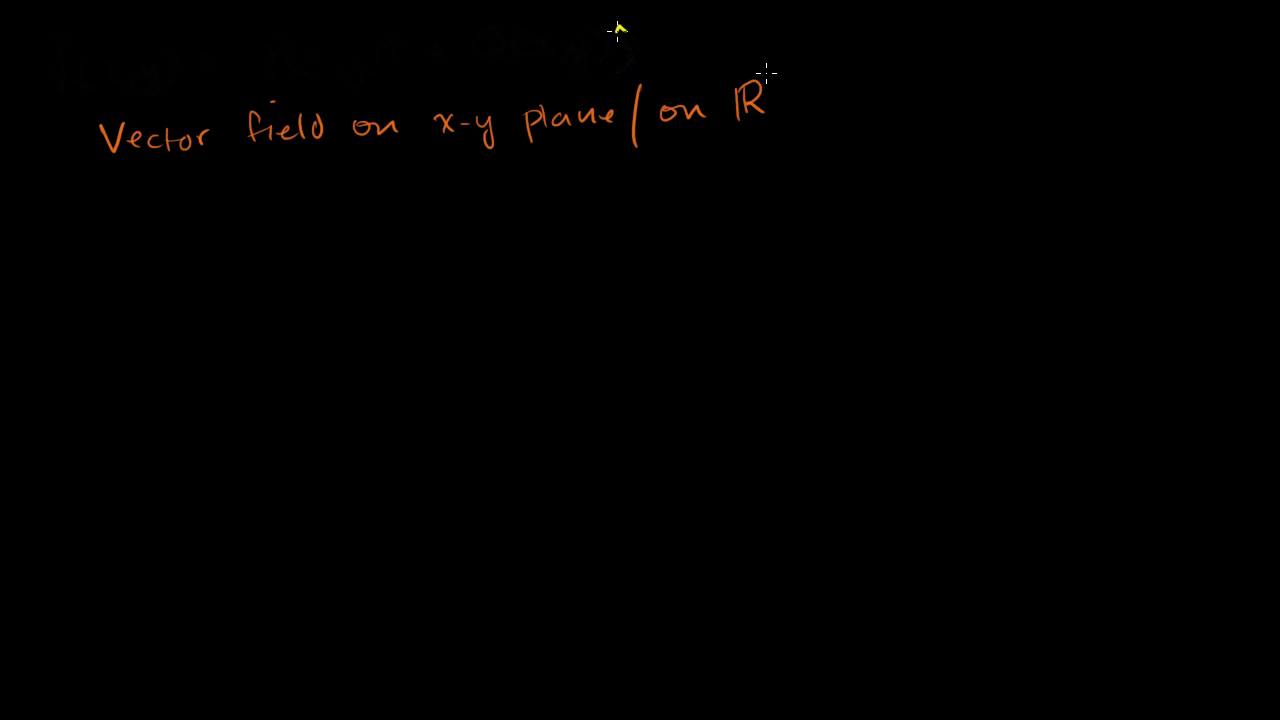 Vector field on x-y plane / on ℝ